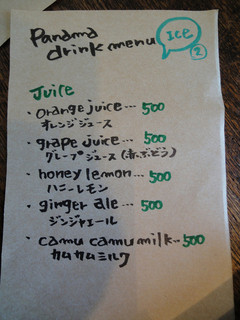 Panama
drink menu
Ice
②
Juice
・orange juice… 500
オレンジジュース
・grape juice… 500
グレープジュース (赤ぶどう)
・honey lemon… 500
ハニーレモン
・ginger ale… 500
ジンジャエール
・camu camu milk… 500
カムカムミルク